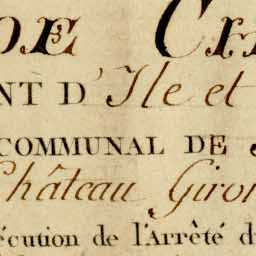 DE C
NT D'Ile et
COMMUNAL DE
Château Giron
écution de l'Arrêté d